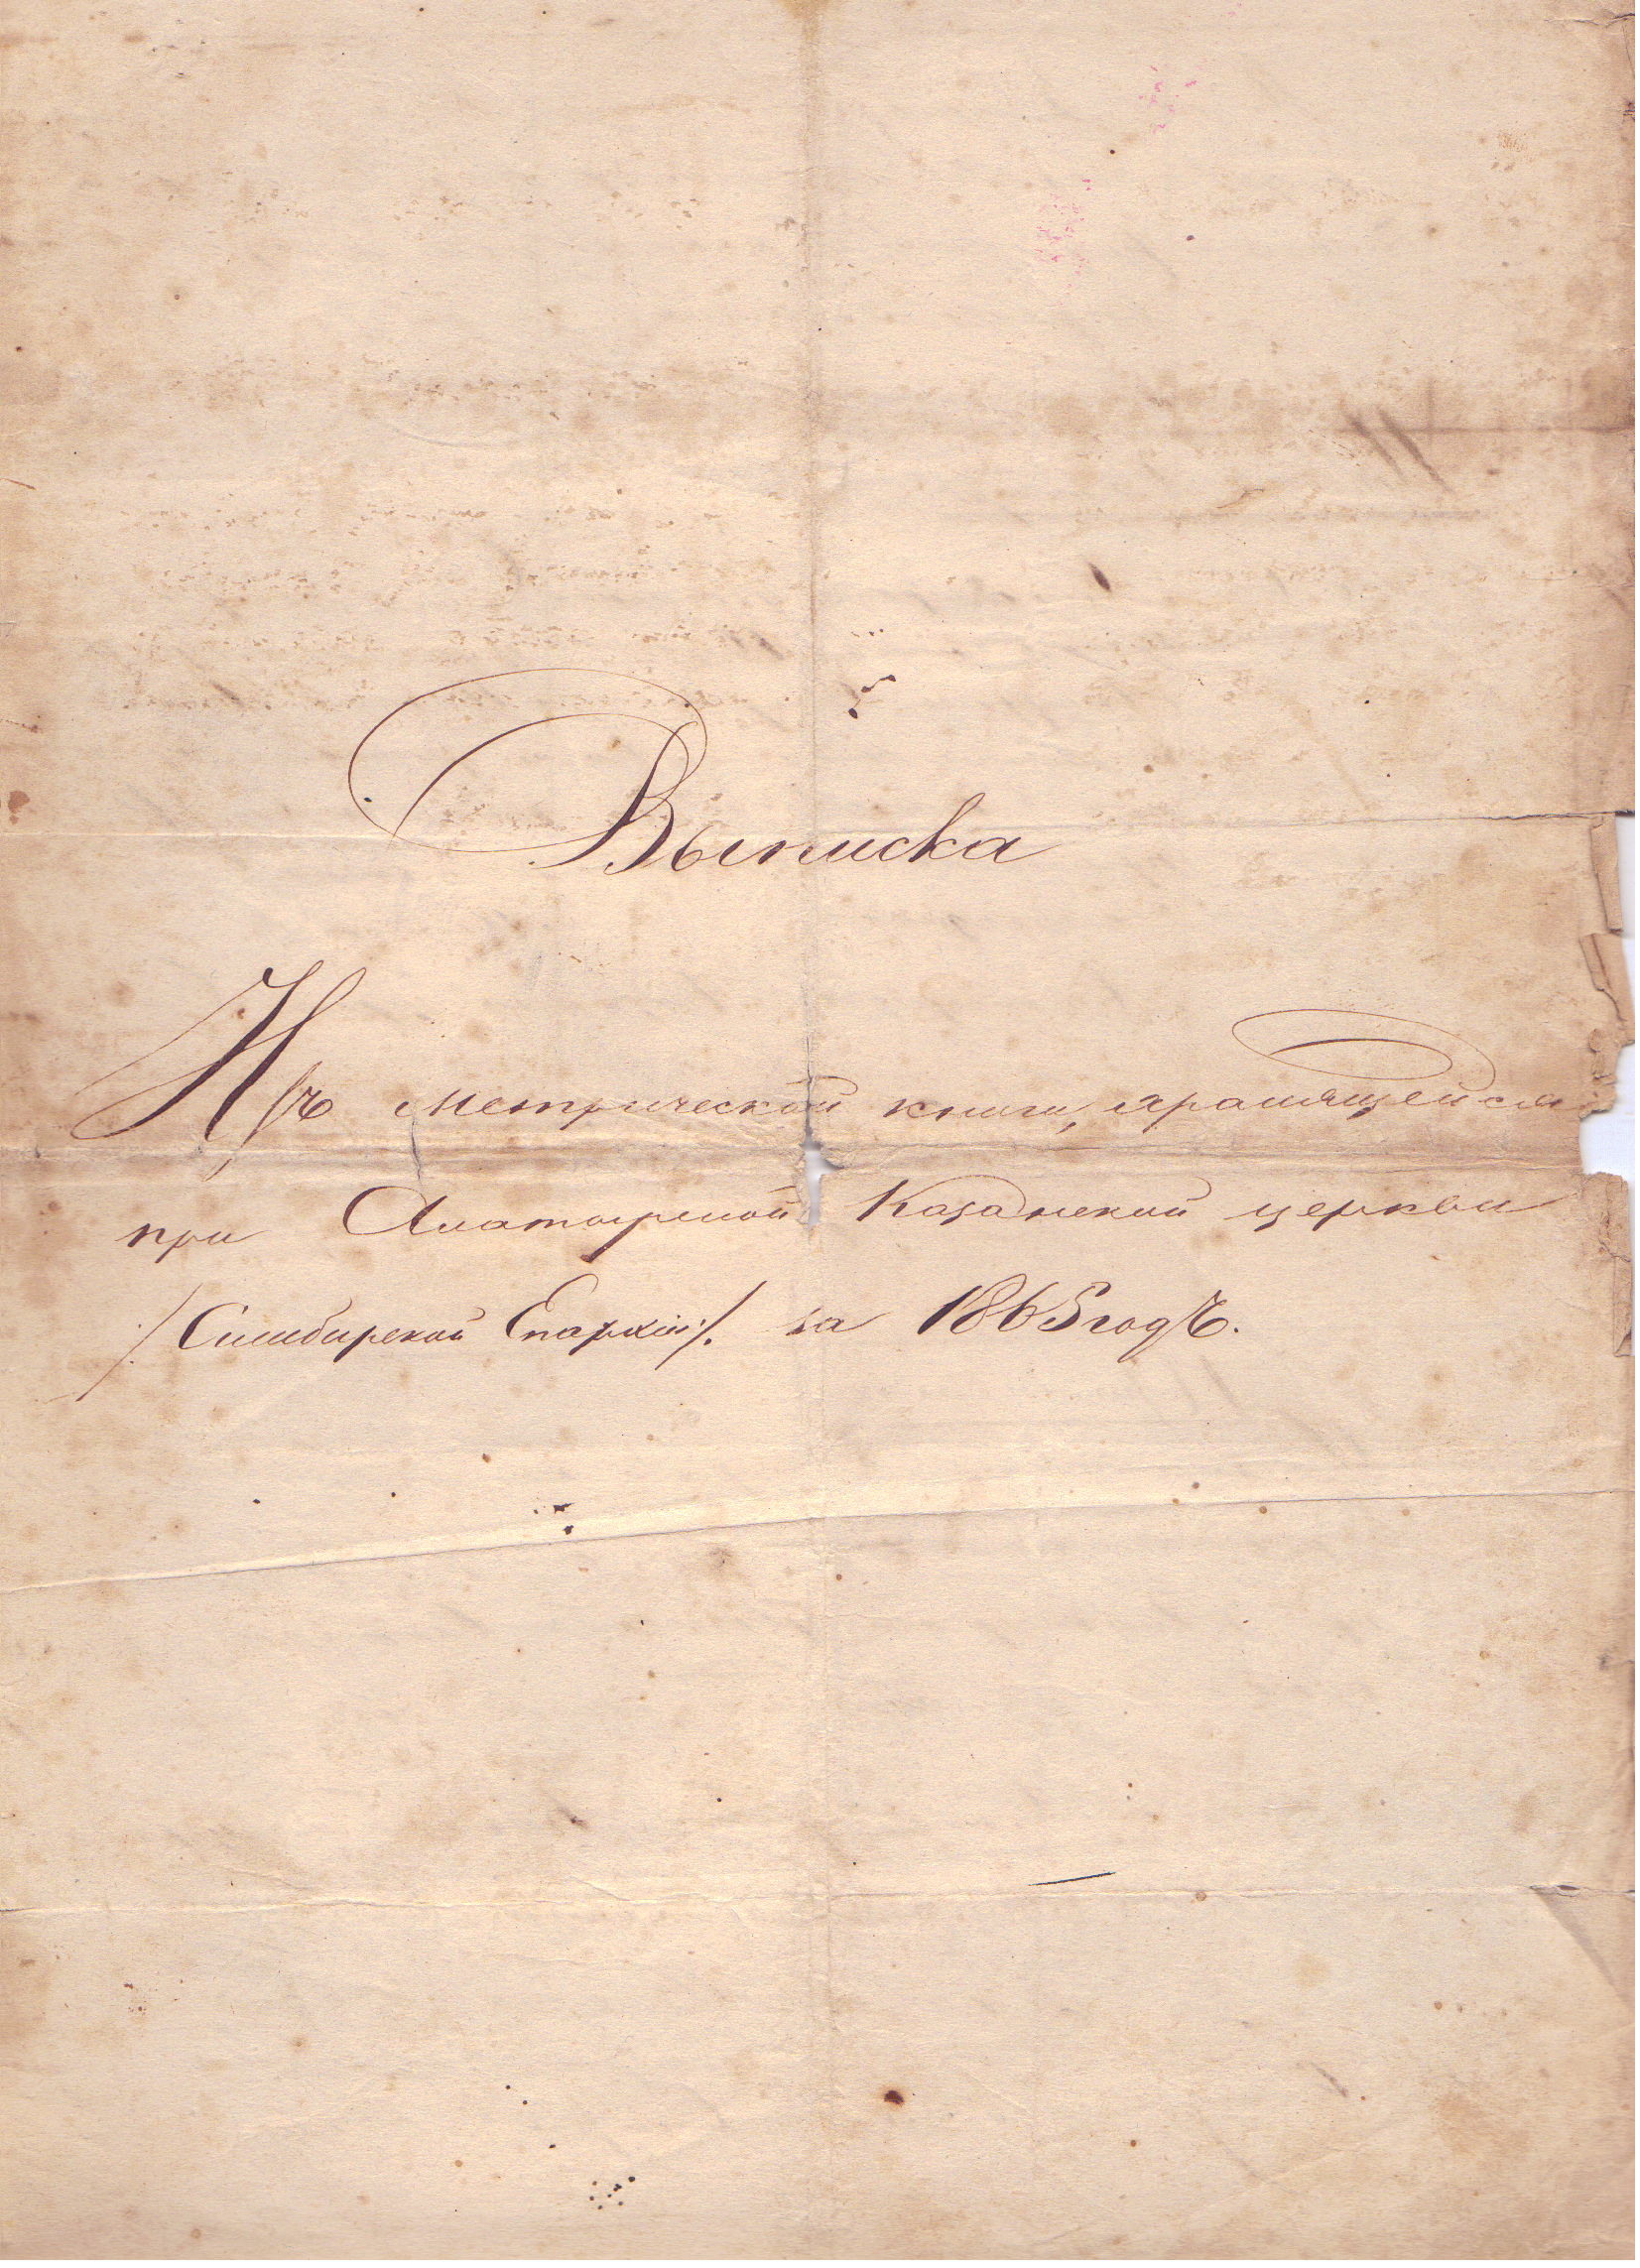 Выписка
Изъ метрической книги, хранящейся
при Алатырской Казанской церкви
/:Симбирской Епархіи:/. за 1865 годъ.